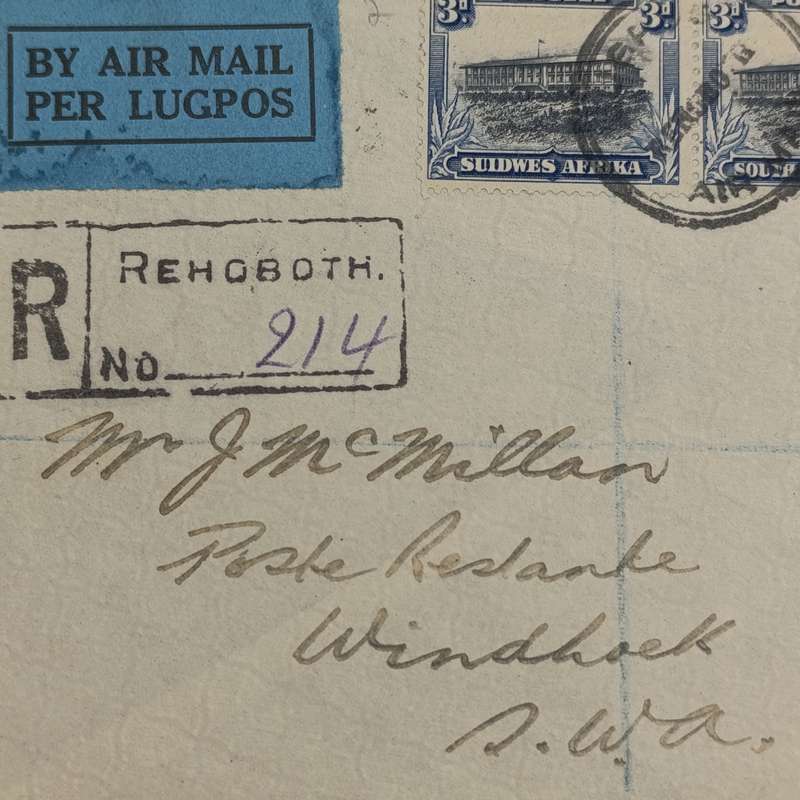 BY AIR MAIL
PER LUGPOS
3d. 3d.
SUIDWES AFRIKA
SOUTH
R
REHOBOTH.
No 214
Mr J McMillan
Poste Restante
Windhoek
S.W.A.